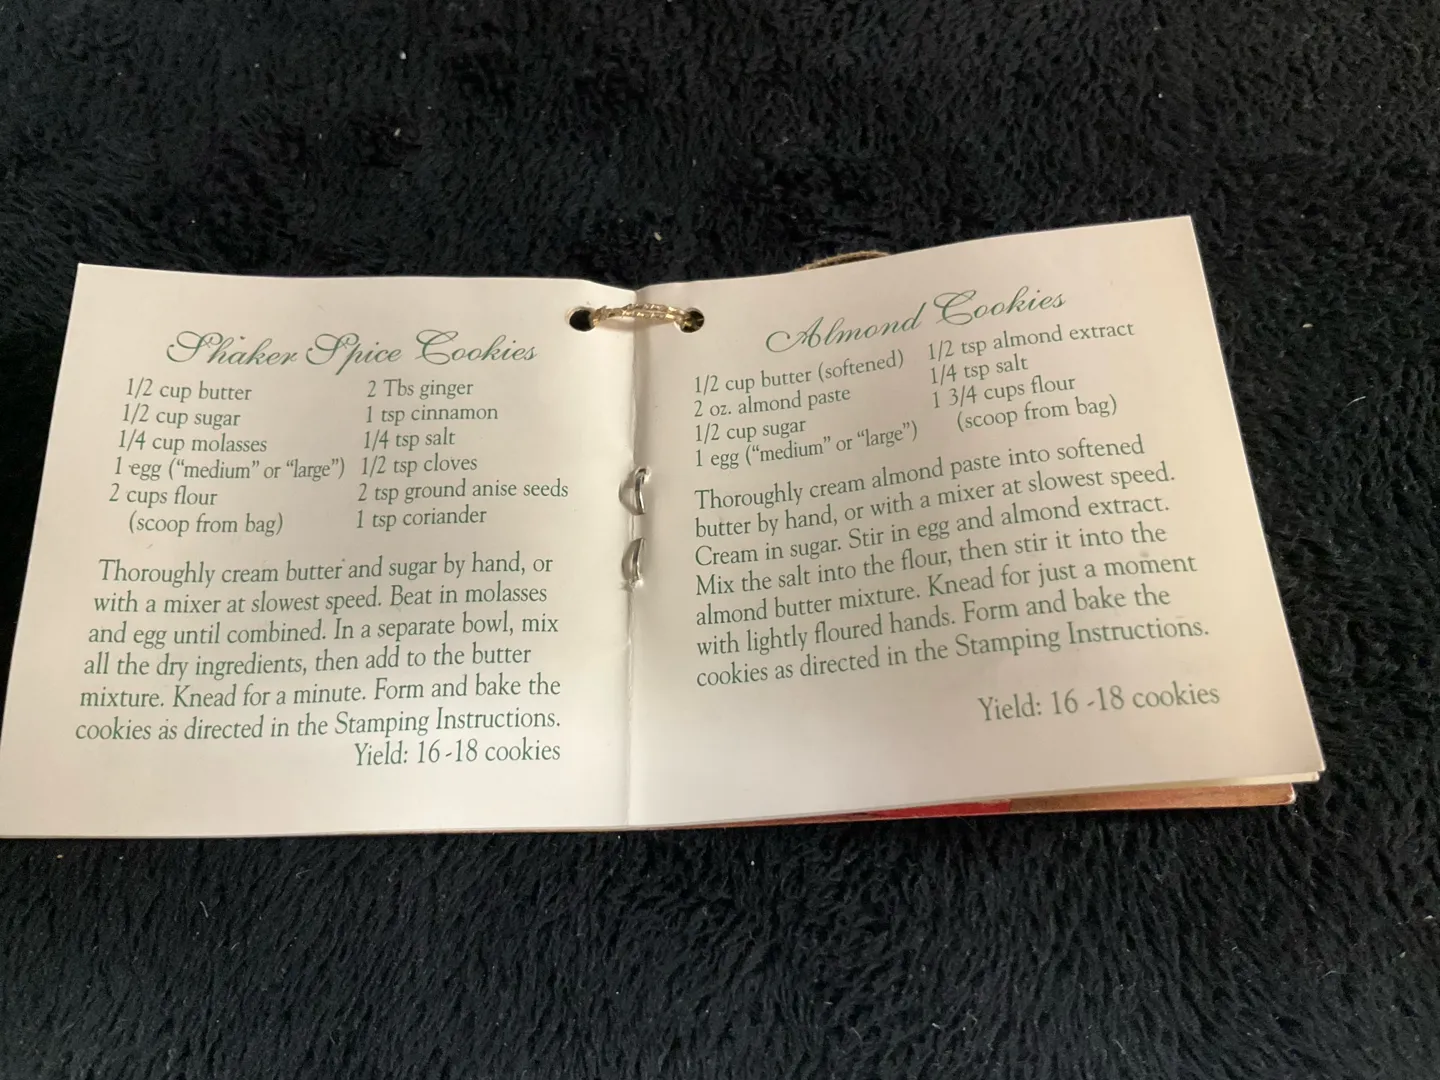 Shaker Spice Cookies
1/2 cup butter
1/2 cup sugar
1/4 cup molasses
1 egg (“medium” or “large”)
2 cups flour
(scoop from bag)
2 Tbs ginger
1 tsp cinnamon
1/4 tsp salt
1/2 tsp cloves
2 tsp ground anise seeds
1 tsp coriander
Thoroughly cream butter and sugar by hand, or
with a mixer at slowest speed. Beat in molasses
and egg until combined. In a separate bowl, mix
all the dry ingredients, then add to the butter
mixture. Knead for a minute. Form and bake the
cookies as directed in the Stamping Instructions.
Yield: 16 -18 cookies
Almond Cookies
1/2 cup butter (softened)
2 oz. almond paste
1/2 cup sugar
1 egg (“medium” or “large”)
1/2 tsp almond extract
1/4 tsp salt
1 3/4 cups flour
(scoop from bag)
Thoroughly cream almond paste into softened
butter by hand, or with a mixer at slowest speed.
Cream in sugar. Stir in egg and almond extract.
Mix the salt into the flour, then stir it into the
almond butter mixture. Knead for just a moment
with lightly floured hands. Form and bake the
cookies as directed in the Stamping Instructions.
Yield: 16 -18 cookies